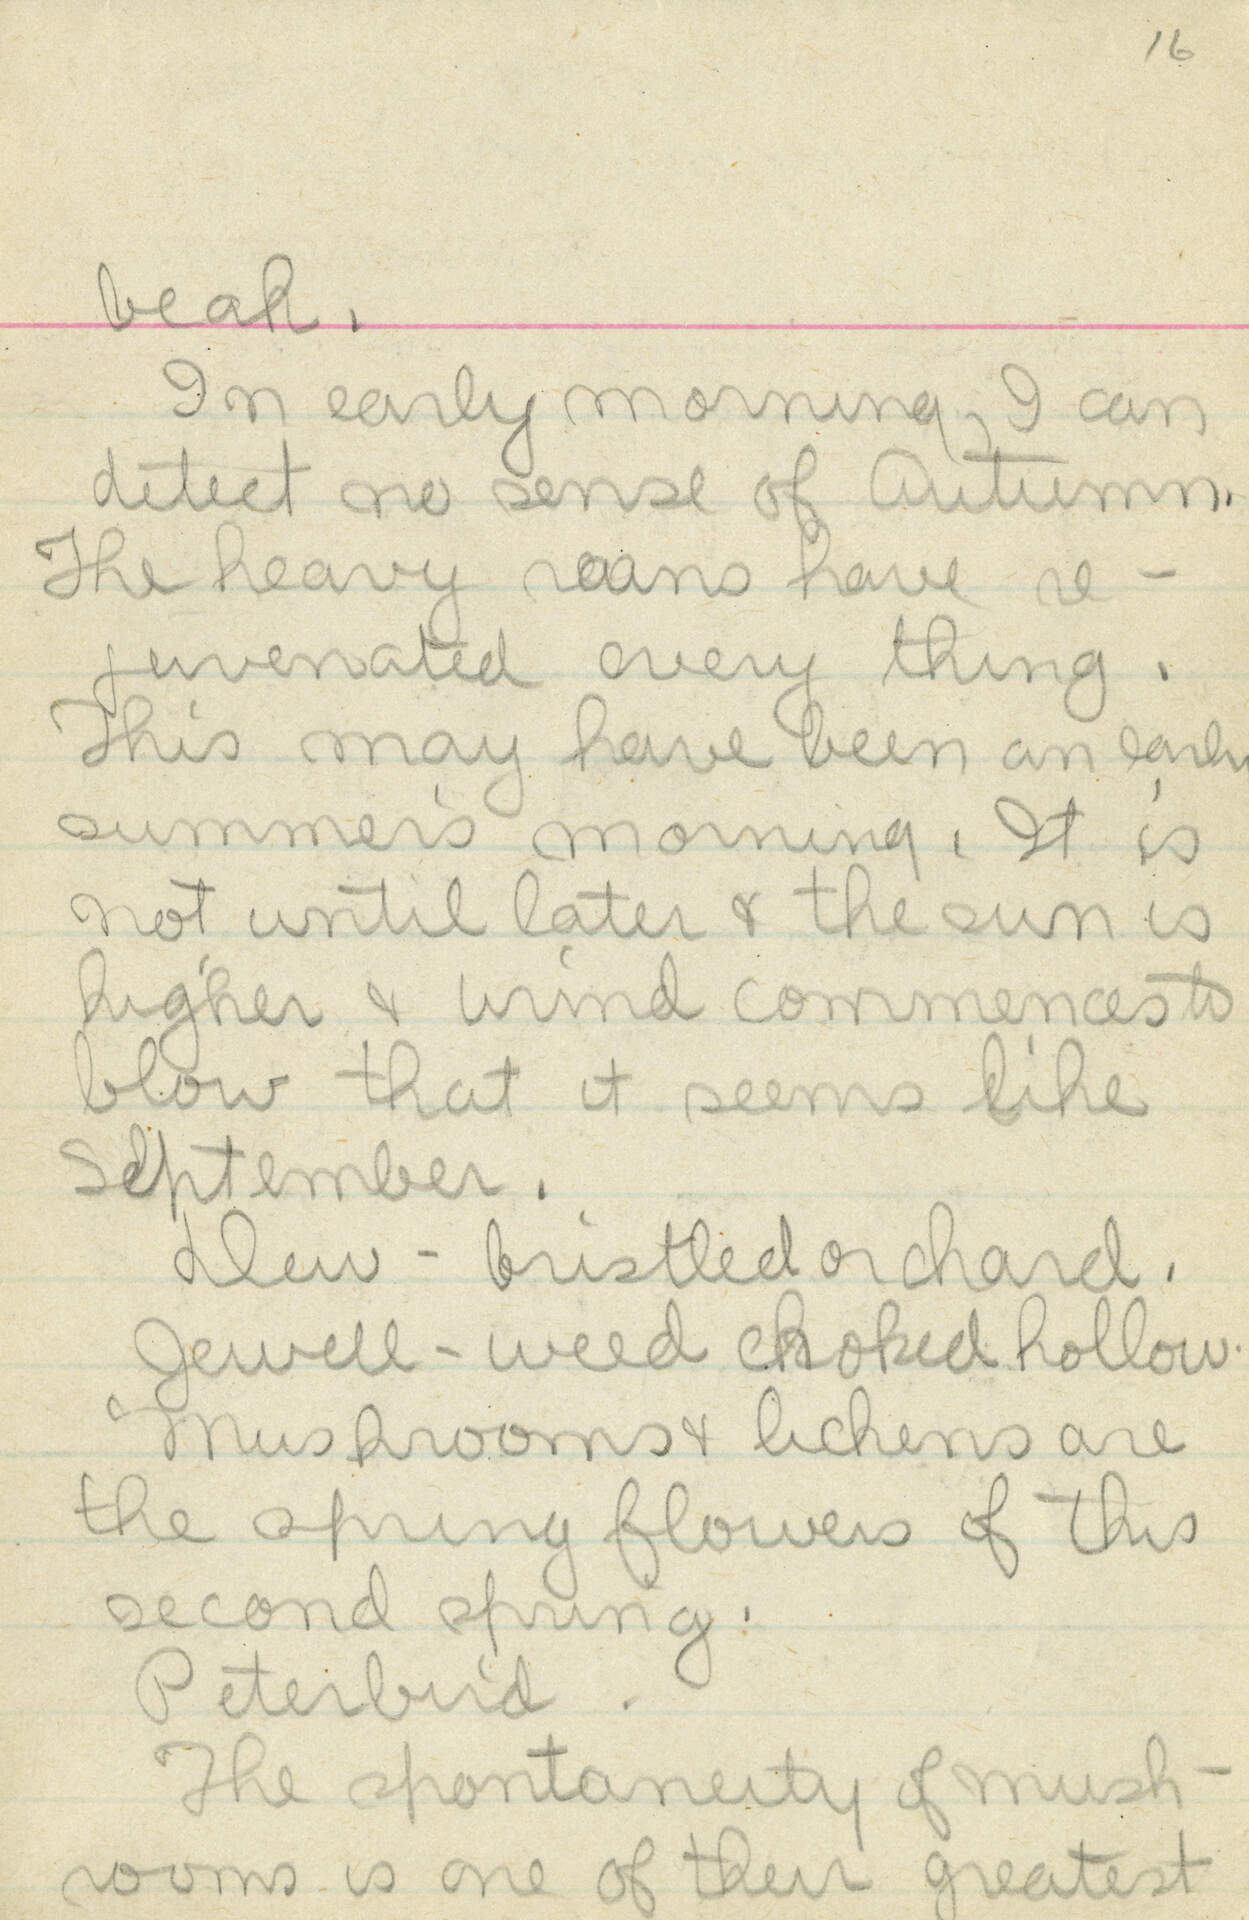 16
beak.
In early morning, I can
detect no sense of Autumn.
The heavy rains have re-
juvenated every thing.
This may have been an early
summer's morning. It is
not until later & the sun is
higher & wind commences to
blow that it seems like
September.
Dew - bristled orchard.
Jewell - weed choked hollow.
Mushrooms & lichens are
the spring flowers of this
second spring.
Peterbird.
The spontaneity of mush-
rooms is one of their greatest